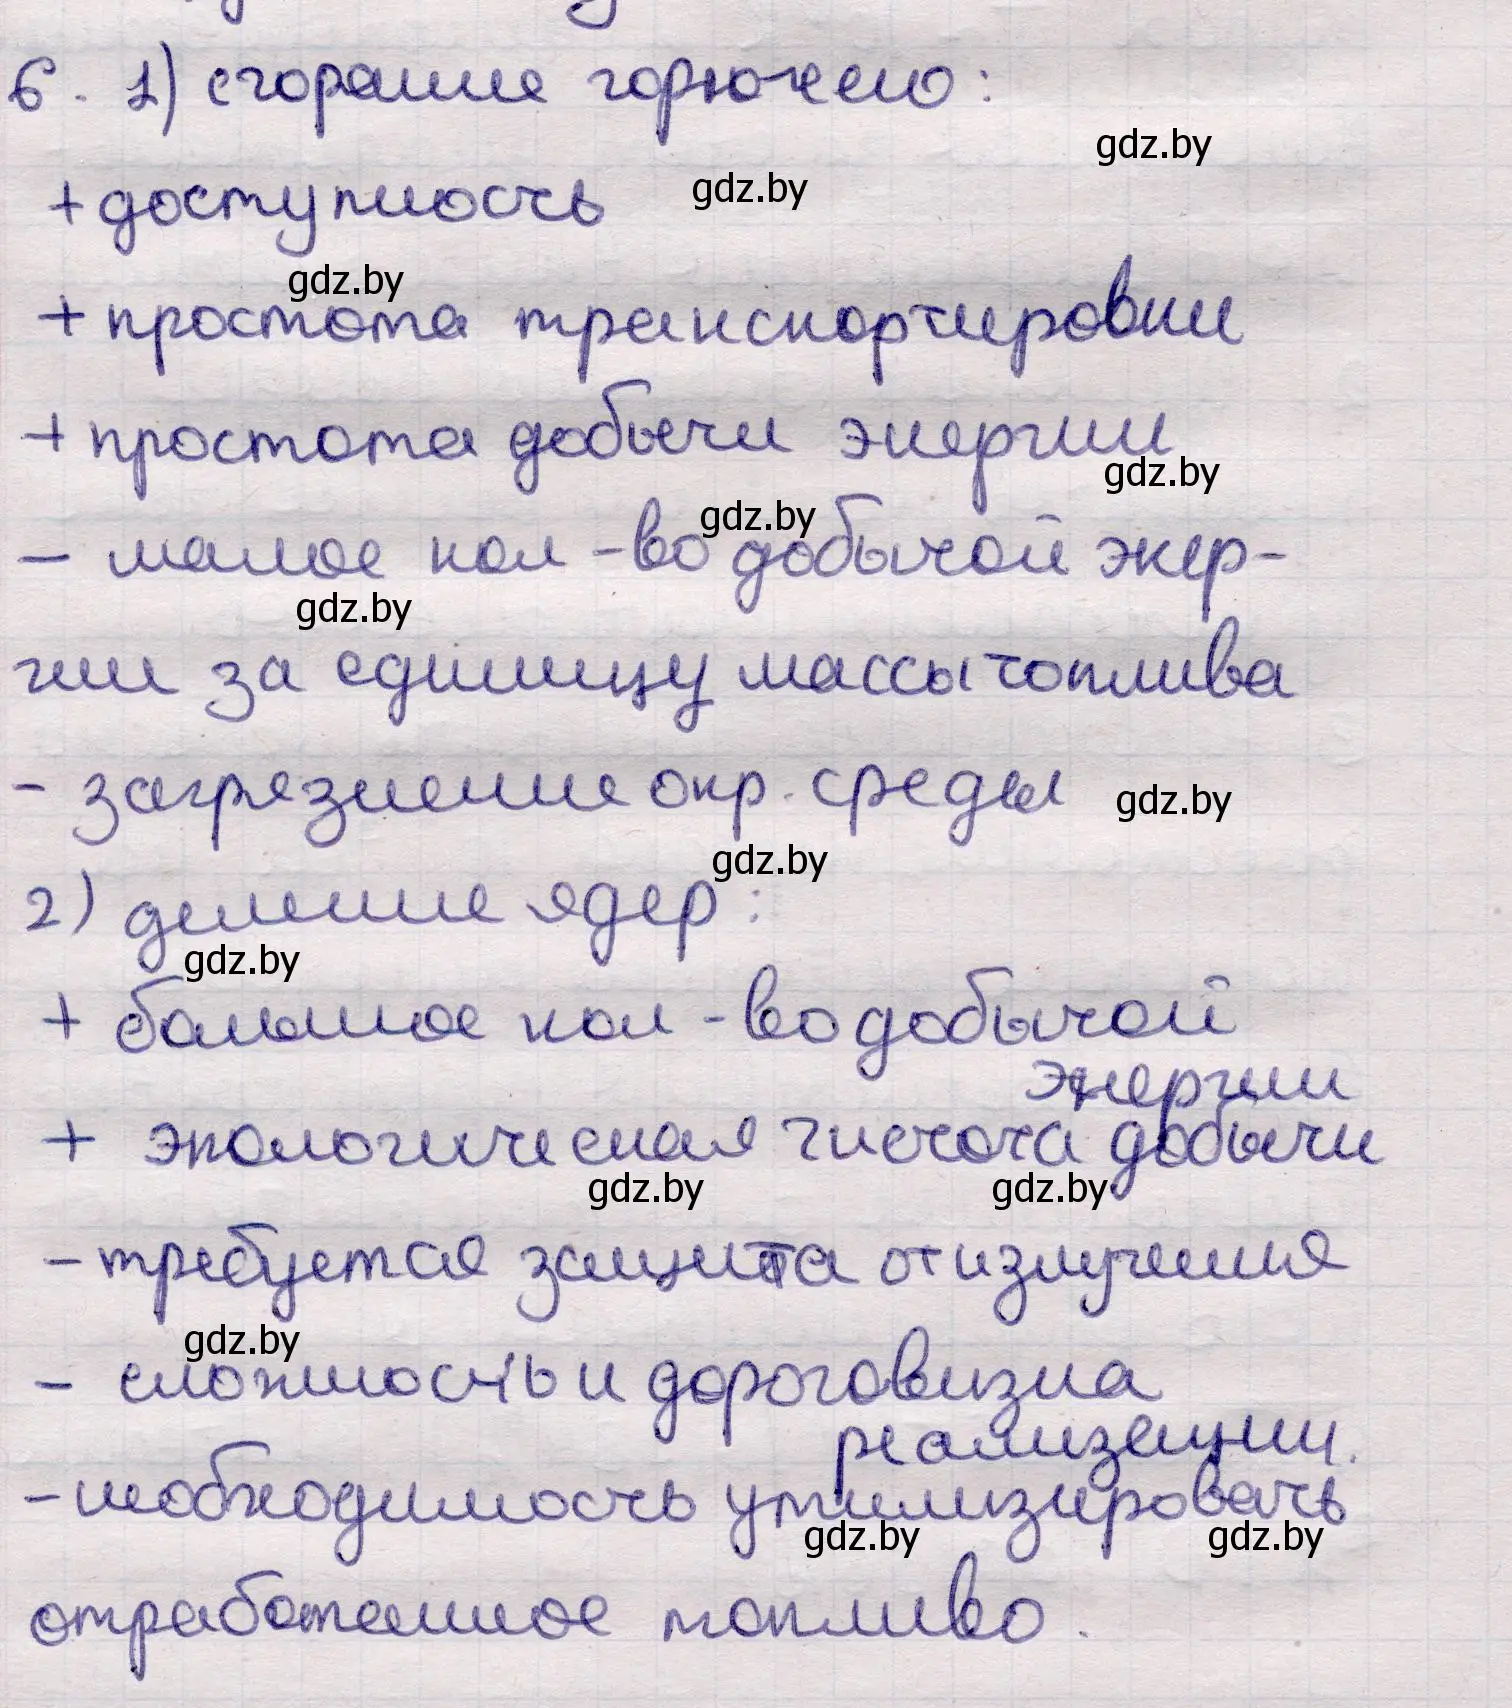 6. 1) сгорание горючего:
gdz.by
+ доступность
gdz.by
gdz.by
+ простота транспортировки
+ простота добычи энергии
gdz.by
gdz.by
- малое кол-во добычой энер-
gdz.by
гии за единицу массы топлива
- загрезнение окр. среды
gdz.by
gdz.by
2) деление ядер:
gdz.by
+ большое кол-во добычой
энергии
+ экологическая чистота добычи
gdz.by
gdz.by
- требуется защита от излучения
gdz.by
- сложность и дороговизна
реализации.
- необходимость утилизировать
gdz.by
gdz.by
отработанное топливо.